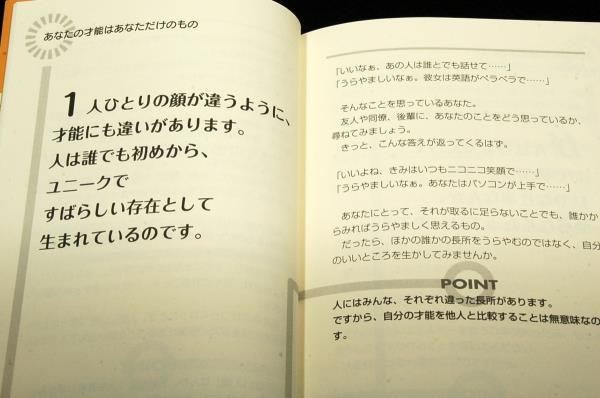 あなたの才能はあなただけのもの
1人ひとりの顔が違うように、
才能にも違いがあります。
人は誰でも初めから、
ユニークで
すばらしい存在として
生まれているのです。
「いいなぁ、あの人は誰とでも話せて……」
「うらやましいなぁ。彼女は英語がペラペラで……」
そんなことを思っているあなた。
友人や同僚、後輩に、あなたのことをどう思っているか、
尋ねてみましょう。
きっと、こんな答えが返ってくるはず。
「いいよね、きみはいつもニコニコ笑顔で……」
「うらやましいなぁ。あなたはパソコンが上手で……」
あなたにとって、それが取るに足らないことでも、誰かか
らみればうらやましく思えるもの。
だったら、ほかの誰かの長所をうらやむのではなく、自分
のいいところを生かしてみませんか。
POINT
人にはみんな、それぞれ違った長所があります。
ですから、自分の才能を他人と比較することは無意味なの
す。